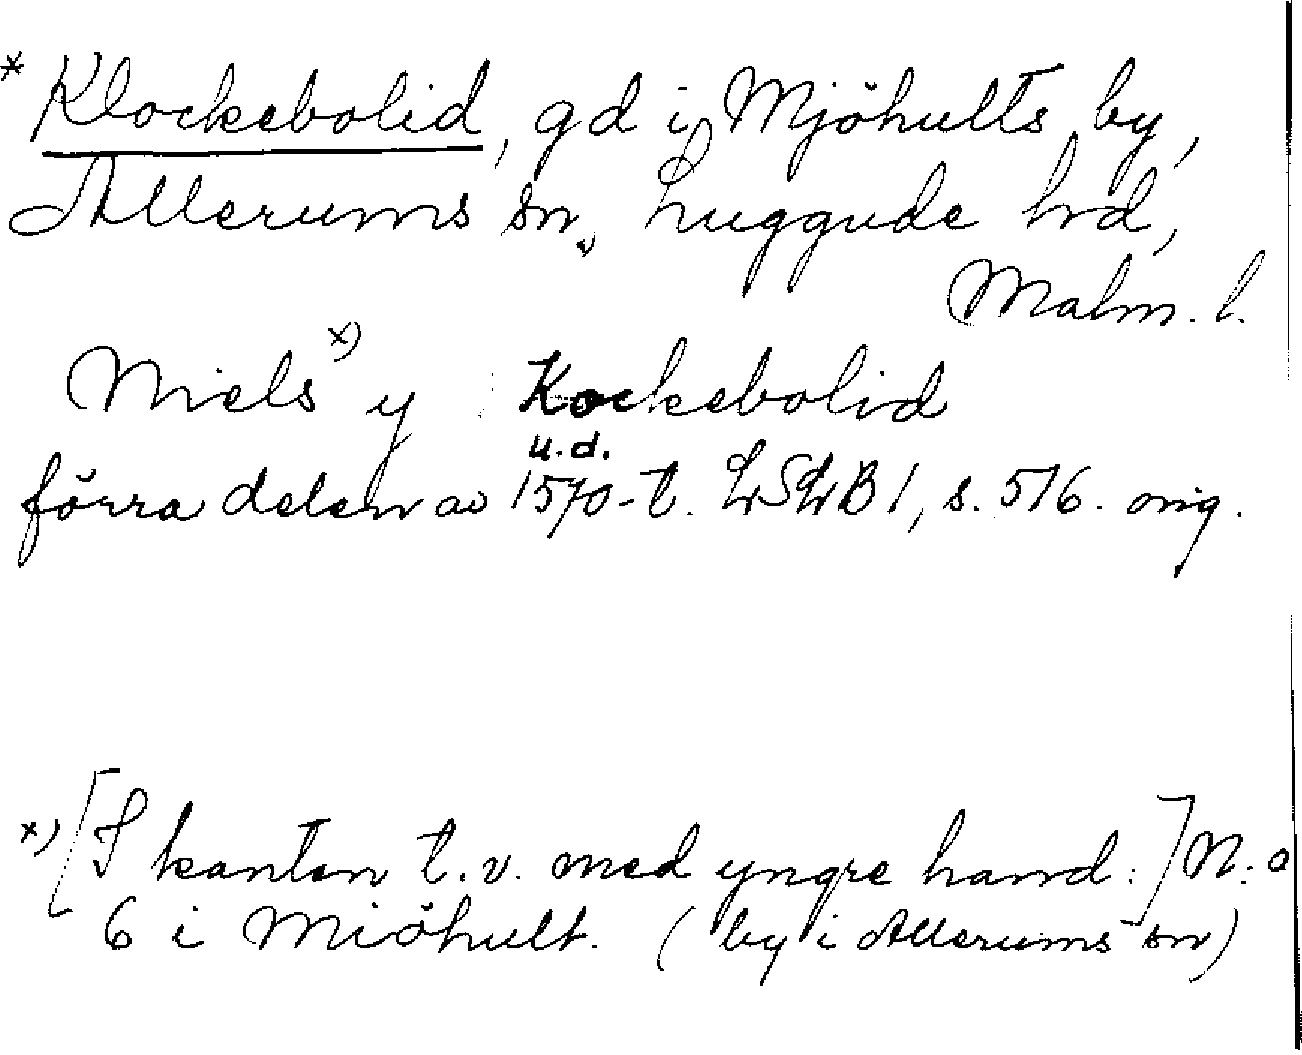 * Klockebolid, gd i Mjöhults by,
Allerums sn, Luggude hd,
Malm. l.
Niels x) y Kockebolid
u.d.
förra delen av 1570-t. LSLB 1, s. 516. orig.
x) [I kanten t.v. med yngre hand:] N:o
6 i Miöhult. (by i Allerums sn)